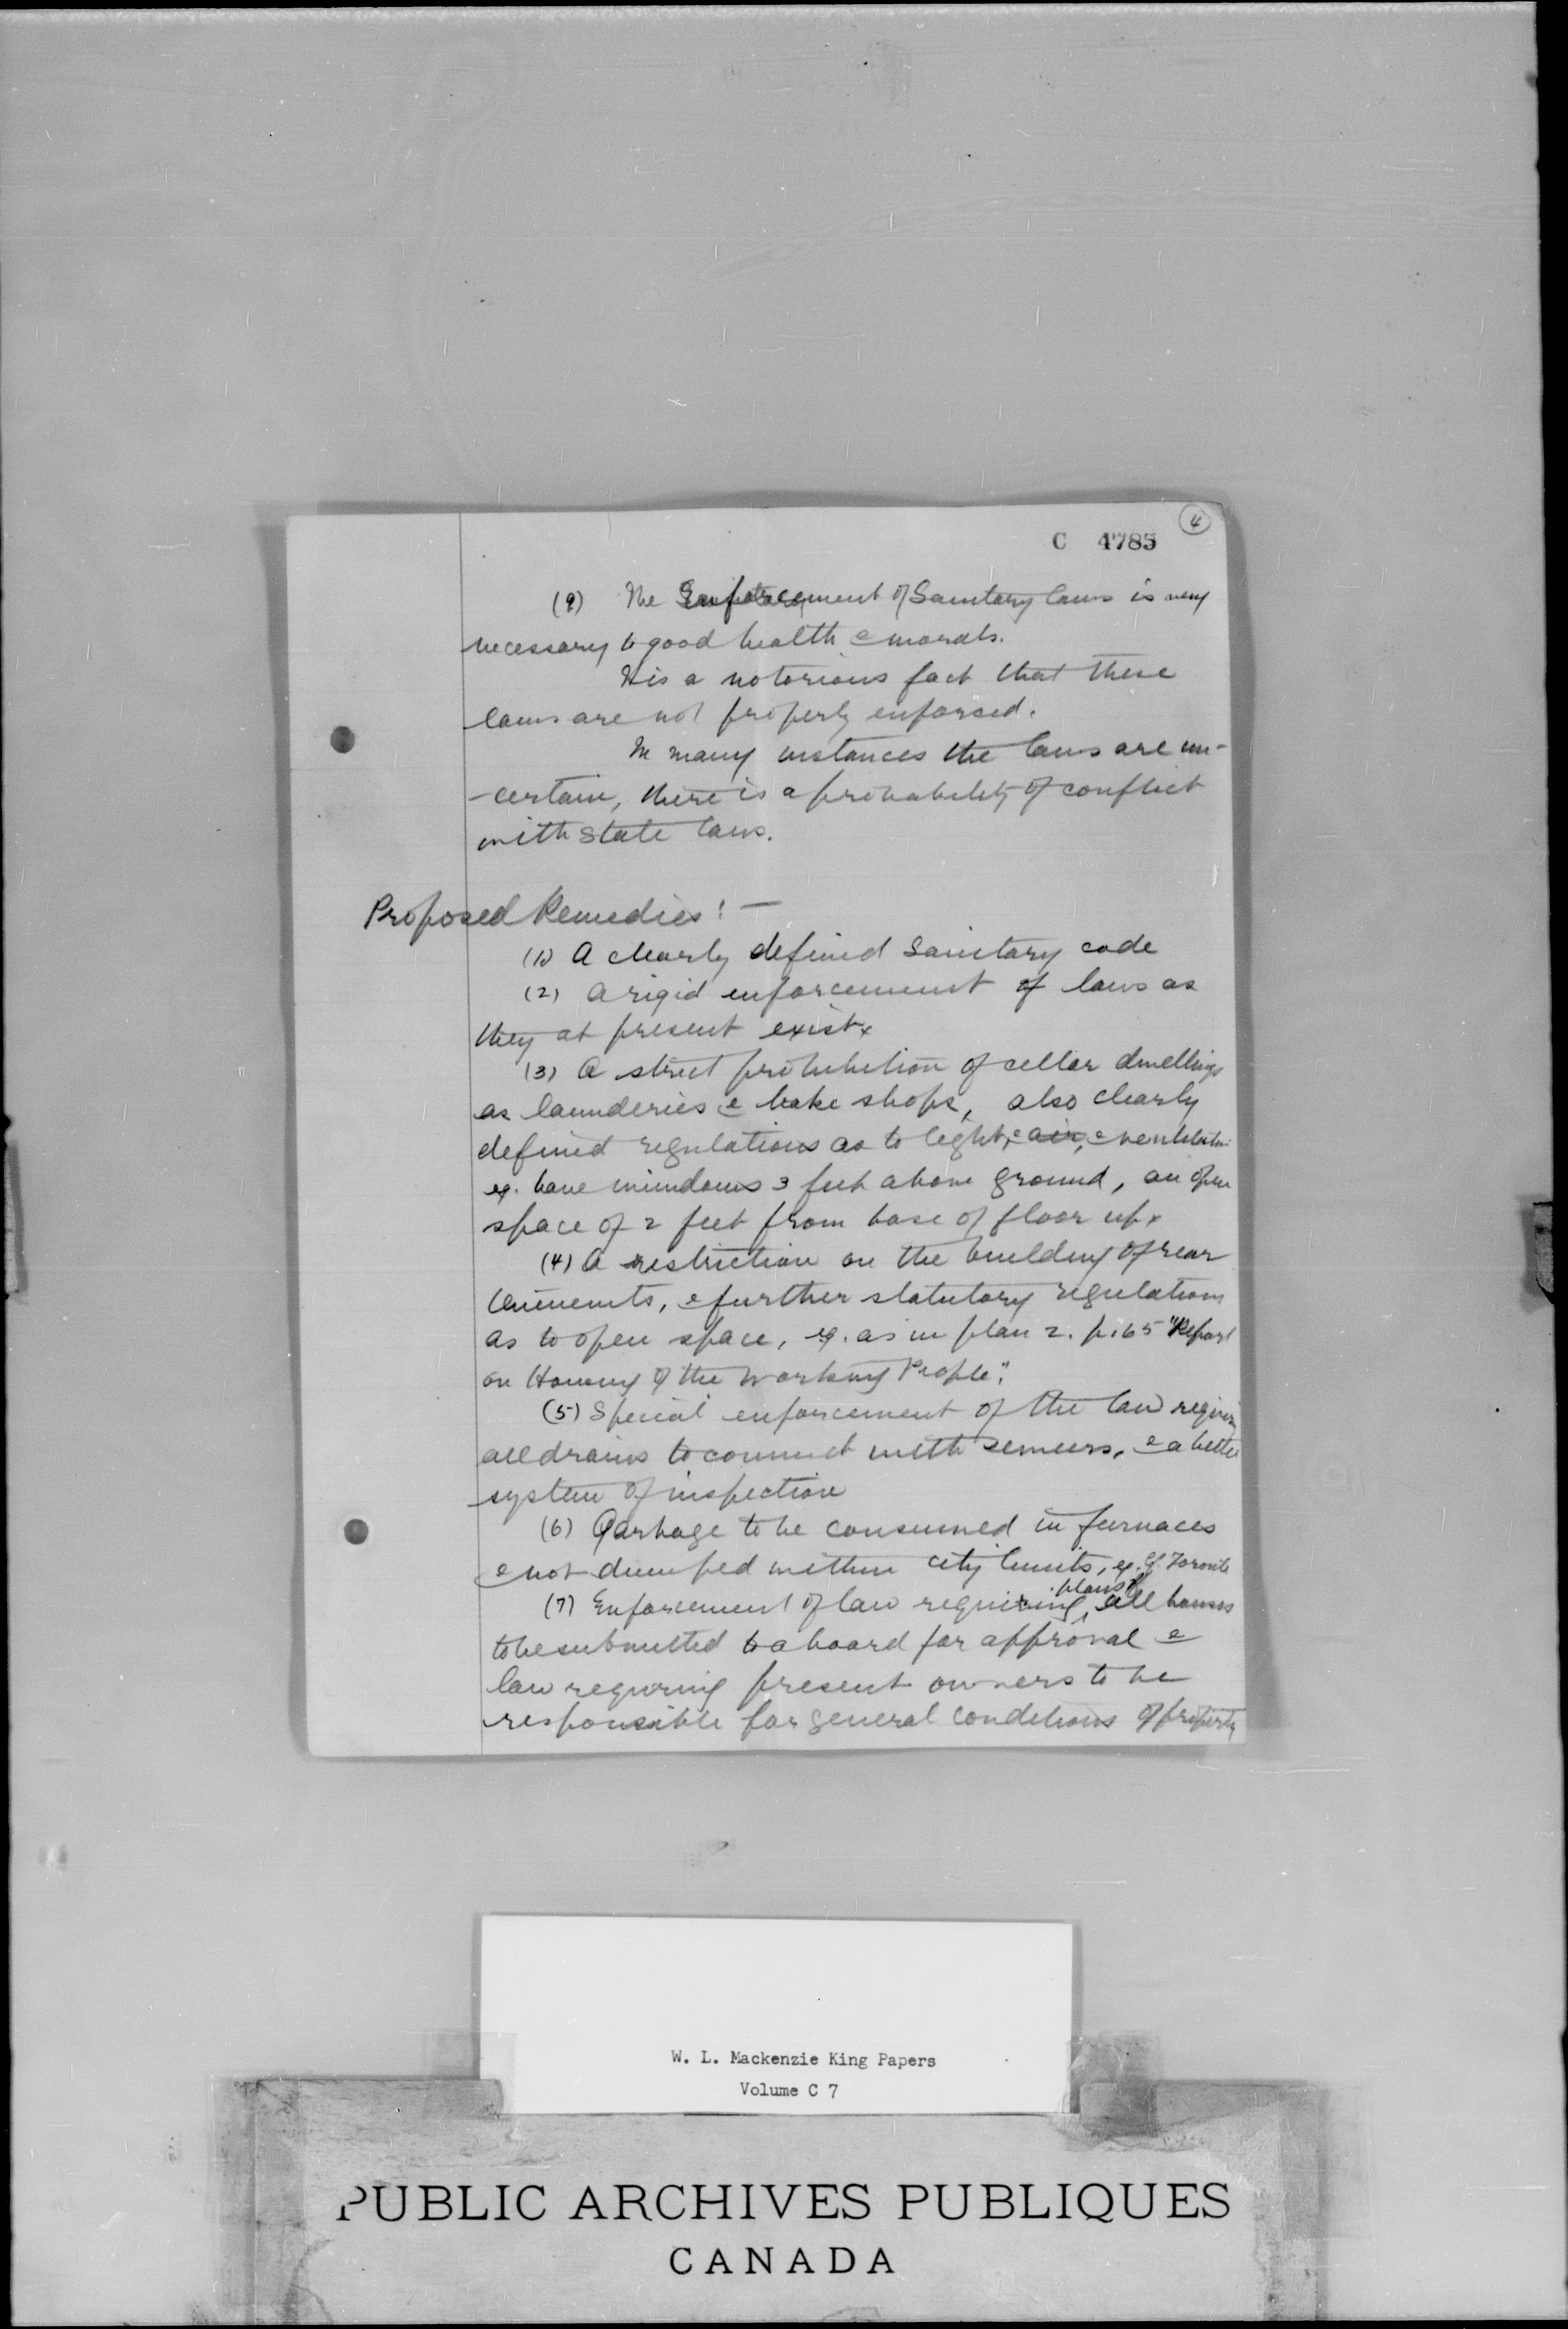 4
C 4785
(9) The Enforcement of Sanitary laws is very
necessary to good health & morals.
It is a notorious fact that these
laws are not properly enforced.
In many instances the laws are un-
-certain, there is a probability of conflict
with state laws.
Proposed Remedies: —
(1) A clearly defined Sanitary code
(2) A rigid enforcement of laws as
they at present exist.
(3) A strict prohibition of cellar dwellings
as launderies & bake shops, also clearly
defined regulations as to light, & air, & ventilation
eg. have windows 3 feet above ground, an open
space of 2 feet from base of floor up.
(4) A restriction on the building of rear
tenements, & further statutory regulations
as to open space, eg. as in plan 2. p. 65 "Report
on Housing of the Working People".
(5) Special enforcement of the law requiring
all drains to connect with sewers, & a better
system of inspection
(6) Garbage to be consumed in furnaces
& not dumped within city limits, eg. cf. Toronto
(7) Enforcement of law requiring plans of all houses
to be submitted to a board for approval &
law requiring present owners to be
responsible for general conditions of property
W. L. Mackenzie King Papers
Volume C 7
PUBLIC ARCHIVES PUBLIQUES
CANADA